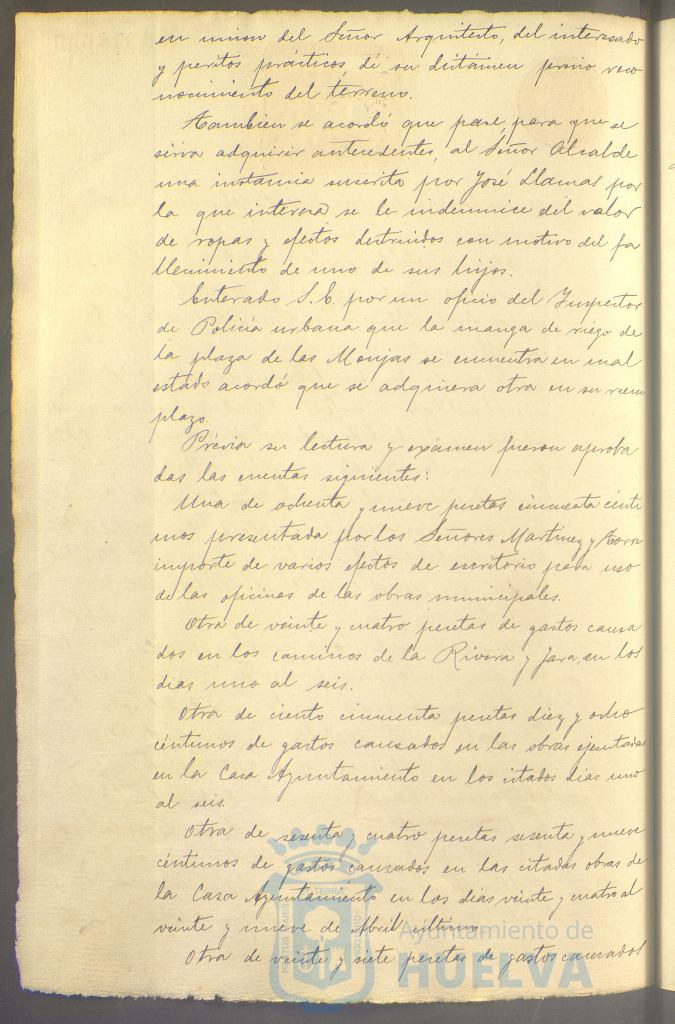 en union del Señor Arquitecto, del interesado
y peritos prácticos dé su dictámen prévio reco
nocimiento del terreno.
Tambien se acordó que pase, para que se
sirva adquirir antecedentes, al Señor Alcalde
una instancia suscrita por José Llamas por
la que interesa se le indemnice del valor
de ropas y efectos destruidos con motivo del fa
llecimiento de uno de sus hijos.
Enterado S. E. por un oficio del Inspector
de Policía urbana que la manga de riego de
la plaza de las Monjas se encuentra en mal
estado acordó que se adquiera otra en su reem
plazo.
Prévia su lectura y exámen fueron aproba
das las cuentas siguientes:
Una de ochenta y nueve pesetas cincuenta cénti
mos presentada por los Señores Martinez y
importe de varios efectos de escritorio para uso
de las oficinas de las obras municipales.
Otra de veinte y cuatro pesetas de gastos causa
dos en los caminos de la Rivera y Jara, en los
dias uno al seis.
Otra de ciento cincuenta pesetas diez y ocho
céntimos de gastos causados en las obras ejecutadas
en la Casa Ayuntamiento en los citados dias uno
al seis.
Otra de sesenta y cuatro pesetas sesenta y nueve
céntimos de gastos causados en las citadas obras de
la Casa Ayuntamiento en los dias veinte y cuatro al
veinte y nueve de Abril último.
Otra de veinte y siete pesetas de gastos causados
Ayuntamiento de
HUELVA